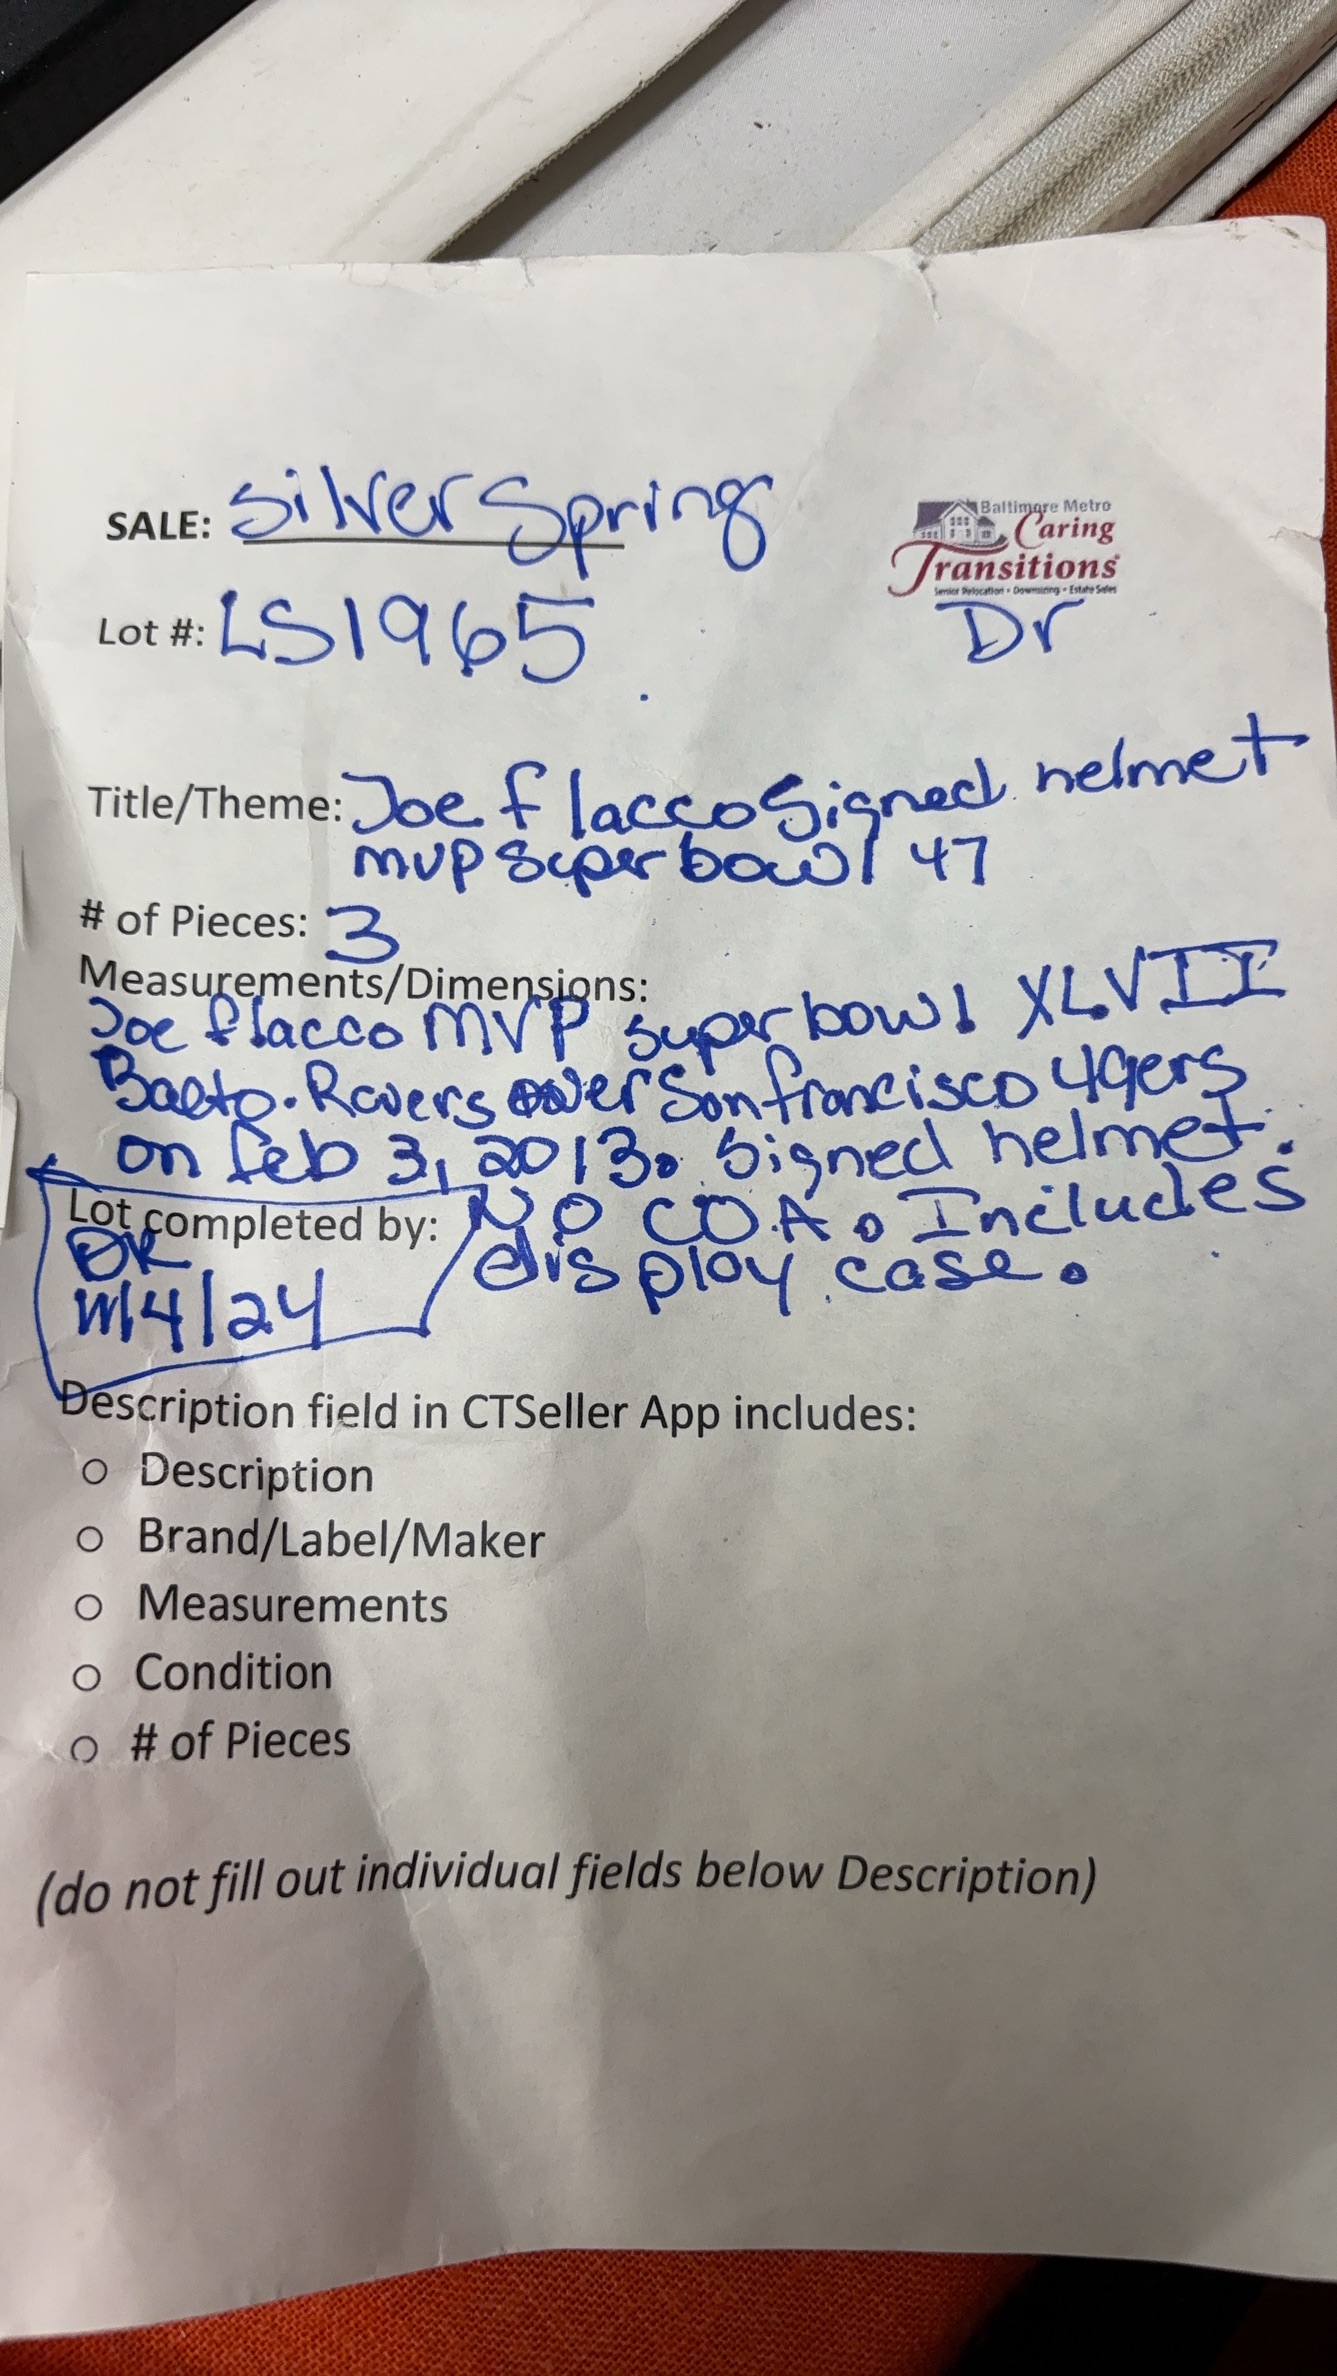 SALE: Silver Spring
Baltimore Metro
Caring
Transitions
Senior Relocation • Downsizing • Estate Sales
Lot #: LS1965
Dr
Title/Theme: Joe flacco Signed helmet
mvp Super bowl 47
# of Pieces: 3
Measurements/Dimensions:
Joe flacco MVP superbowl XLVII
Balto. Ravens over San francisco 49ers
on feb 3, 2013. Signed helmet.
Lot completed by: NO COA. Includes
DR display case.
11/4/24
Description field in CTSeller App includes:
○ Description
○ Brand/Label/Maker
○ Measurements
○ Condition
○ # of Pieces
(do not fill out individual fields below Description)